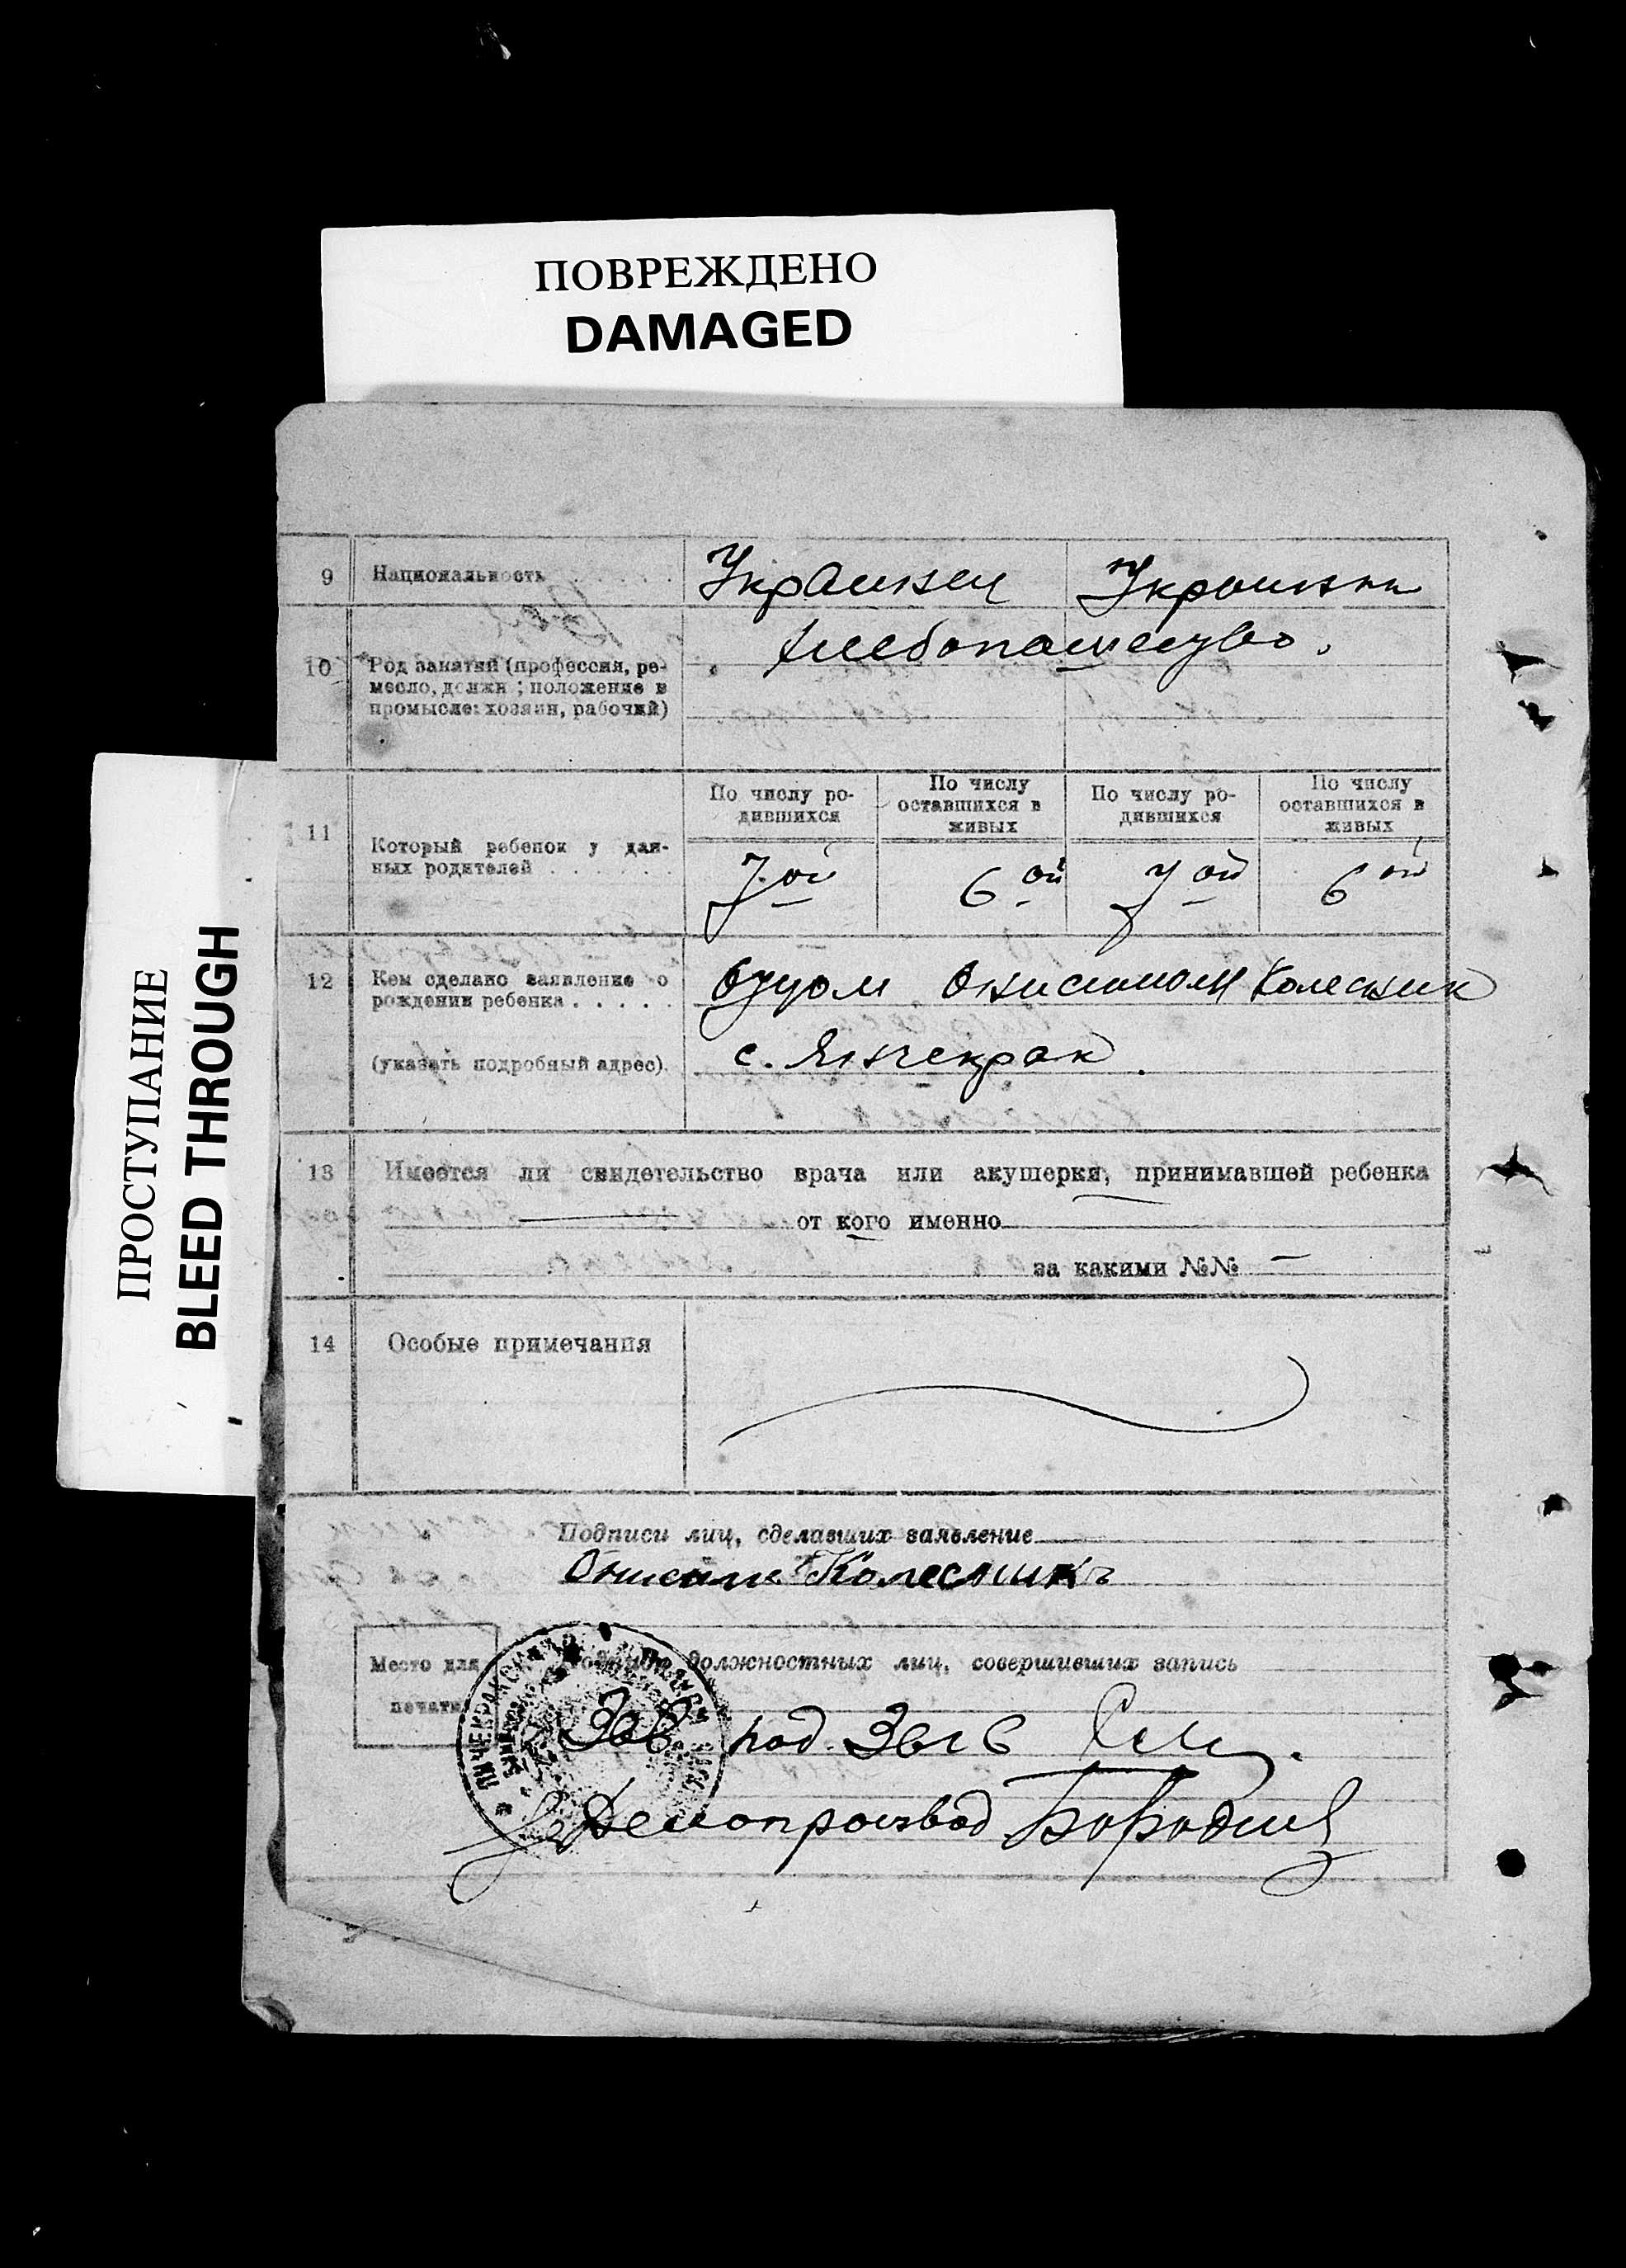 ПОВРЕЖДЕНО
DAMAGED
ПРОСТУПАНИЕ
BLEED THROUGH
9 Национальность . . . . . . Украинец Украинка
10 Род занятий (профессия, ре- Хлебопашество.
месло, должн; положение в
промысле: хозяин, рабочий)
11 Который ребенок у дан-
ных родителей . . . . . . .
По числу ро-
дившихся
По числу
оставшихся в
живых
По числу ро-
дившихся
По числу
оставшихся в
живых
7 ой 6 ой 7 ой 6 ой
12 Кем сделано заявление о Отцом Онисимом Колесник
рождении ребенка . . . . .
(указать подробный адрес). с. Янчекрак.
13 Имеется ли свидетельство врача или акушерки, принимавшей ребенка
— от кого именно
за какими №№ —
14 Особые примечания
Подписи лиц, сделавших заявление
Онисим Колесникъ
Место для
печати
Подписи должностных лиц, совершивших запись
Зав под. Загс
Делопроизвод